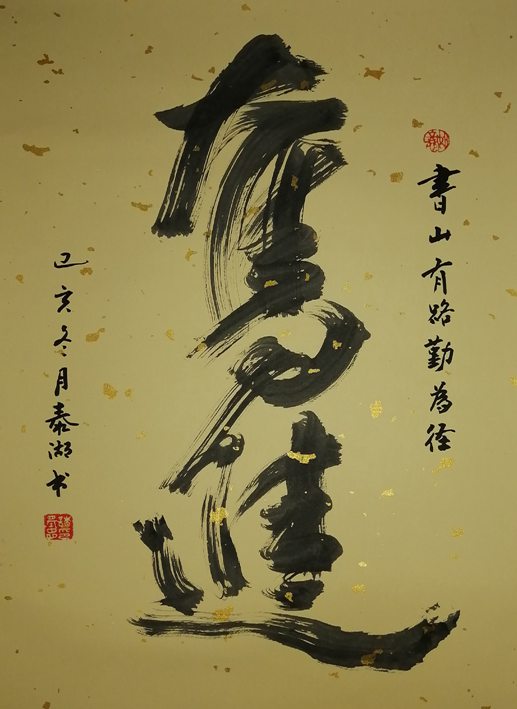 書山有路勤為徑
奮進
己亥冬月泰湖书